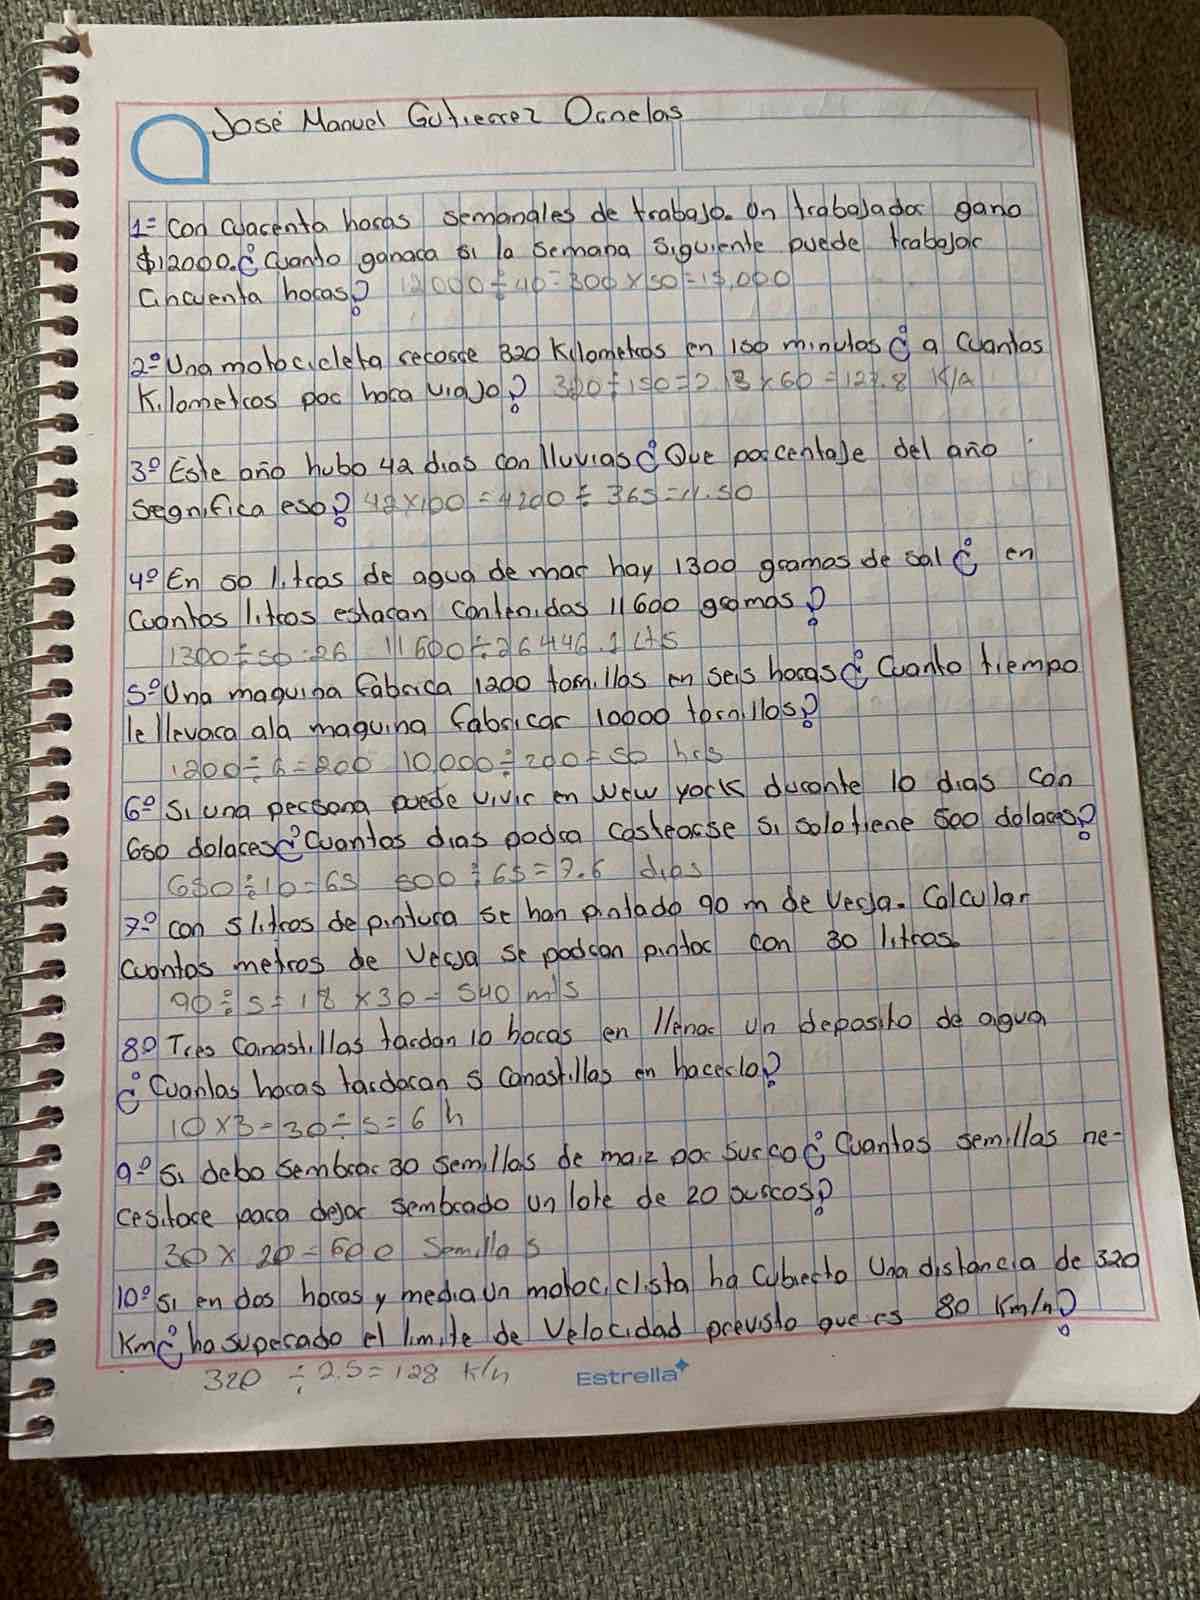 José Manuel Gutierrez Ornelas
1= Con cuarenta horas semanales de trabajo. Un trabajador gano
$12000. ¿Cuanto ganara si la semana siguiente puede trabajar
cincuenta horas? 12000 ÷ 40 = 300 x 50 = 15,000
2º Una motocicleta recorre 320 Kilometros en 150 minutos ¿ a cuantos
Kilometros por hora viajo? 320 ÷ 150 = 2.13 x 60 = 127.8 K/h
3º Este año hubo 42 dias con lluvias ¿ Que porcentaje del año
segnifica eso? 42 x 100 = 4200 ÷ 365 = 11.50
4º En 50 litros de agua de mar hay 1300 gramos de sal ¿ en
cuantos litros estaran contenidas 11600 gramos?
1300 ÷ 50 = 26 11600 ÷ 26 446.1 Lts
5º Una maquina fabrica 1200 tornillos en seis horas ¿ Cuanto tiempo
le llevara ala maquina fabricar 10000 tornillos?
1200 ÷ 6 = 200 10,000 ÷ 200 = 50 hrs
6º Si una persona puede vivir en New York durante 10 dias con
650 dolares ¿ Cuantos dias podra costearse si solo tiene 500 dolares?
650 ÷ 10 = 65 500 ÷ 65 = 7.6 dias
7º con 5 litros de pintura se han pintado 90 m de verja. Calcular
cuantos metros de verja se podran pintar con 30 litros.
90 ÷ 5 = 18 x 30 = 540 mts
8º Tres canastillas tardan 10 horas en llenar un deposito de agua
¿ Cuantas horas tardaran 5 canastillas en hacerlo?
10 x 3 = 30 ÷ 5 = 6 h
9º Si debo sembrar 30 semillas de maiz por surco ¿ Cuantas semillas ne-
cesitare para dejar sembrado un lote de 20 surcos?
30 x 20 = 600 Semillas
10º Si en dos horas y media un motociclista ha cubierto una distancia de 320
Km ¿ ha superado el limite de velocidad previsto que es 80 Km/h?
320 ÷ 2.5 = 128 K/h
Estrella